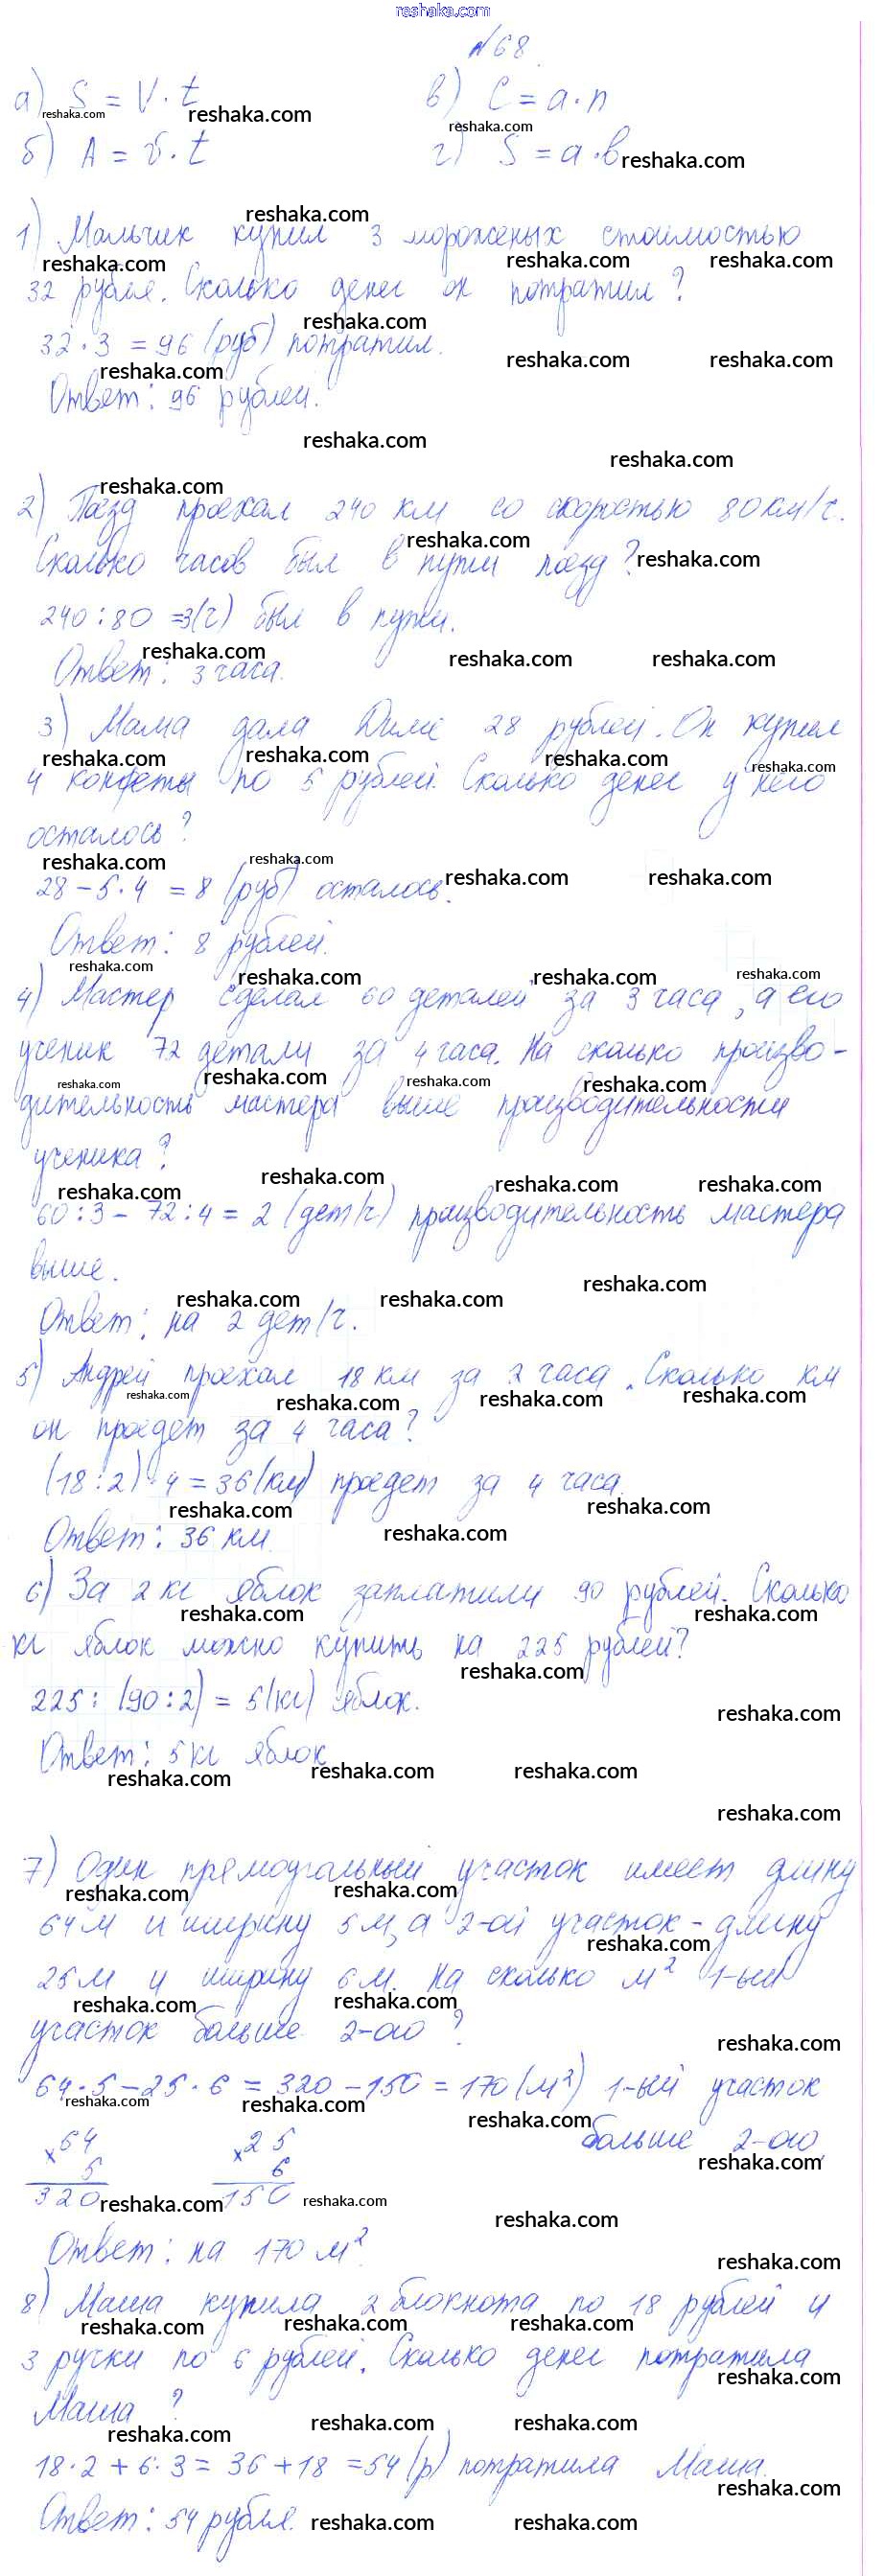 reshaka.com
№68.
а) S = V · t в) C = a · n
б) A = v · t г) S = a · b
1) Мальчик купил 3 мороженых стоимостью
32 рубля. Сколько денег он потратил?
32 · 3 = 96 (руб) потратил.
Ответ: 96 рублей.
2) Поезд проехал 240 км со скоростью 80 км/ч.
Сколько часов был в пути поезд?
240 : 80 = 3(ч) был в пути.
Ответ: 3 часа.
3) Мама дала Диме 28 рублей. Он купил
4 конфеты по 5 рублей. Сколько денег у него
осталось?
28 - 5 · 4 = 8 (руб) осталось.
Ответ: 8 рублей.
4) Мастер сделал 60 деталей за 3 часа, а его
ученик 72 детали за 4 часа. На сколько произво-
дительность мастера выше производительности
ученика?
60 : 3 - 72 : 4 = 2 (дет/ч) производительность мастера
выше.
Ответ: на 2 дет/ч.
5) Андрей проехал 18 км за 2 часа. Сколько км
он проедет за 4 часа?
(18 : 2) · 4 = 36 (км) проедет за 4 часа.
Ответ: 36 км.
6) За 2 кг яблок заплатили 90 рублей. Сколько
кг яблок можно купить на 225 рублей?
225 : (90 : 2) = 5 (кг) яблок.
Ответ: 5 кг яблок
7) Один прямоугольный участок имеет длину
64 м и ширину 5 м, а 2-ой участок - длину
25 м и ширину 6 м. На сколько м² 1-ый
участок больше 2-ого?
64 · 5 - 25 · 6 = 320 - 150 = 170 (м²) 1-ый участок
больше 2-ого.
× 64 × 25
5 6
320 150
Ответ: на 170 м².
8) Маша купила 2 блокнота по 18 рублей и
3 ручки по 6 рублей. Сколько денег потратила
Маша?
18 · 2 + 6 · 3 = 36 + 18 = 54 (р) потратила Маша.
Ответ: 54 рубля.